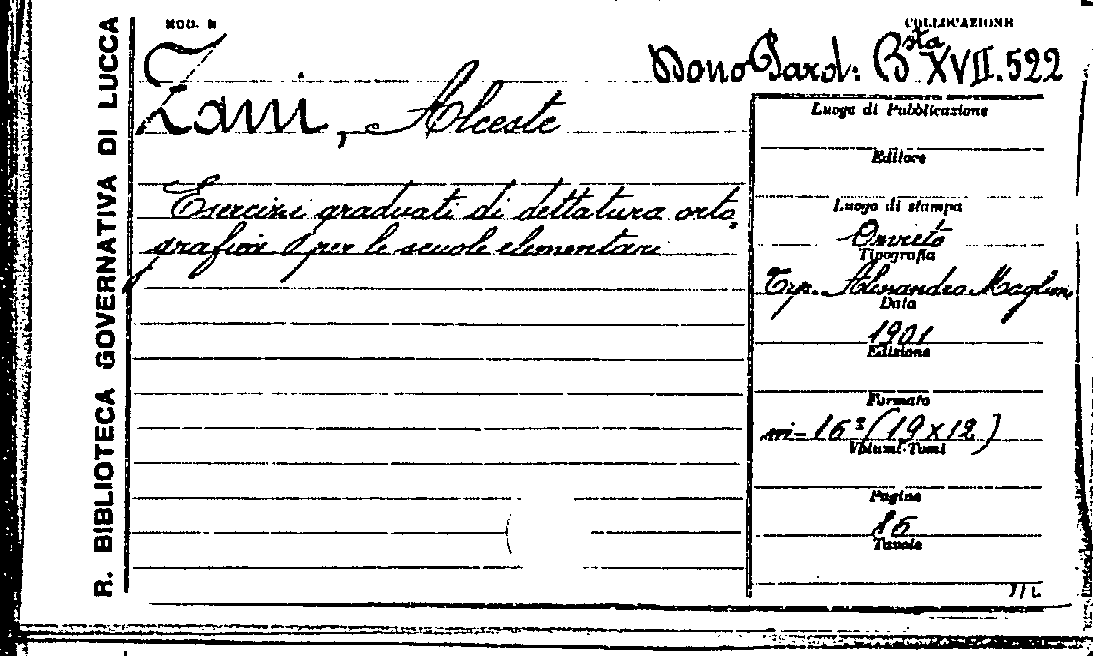 R. BIBLIOTECA GOVERNATIVA DI LUCCA
MOD. N
COLLOCAZIONE
Dono Parol: Bsta XVII.522
Zani, Alceste
Esercizi graduati di dettatura orto-
grafica per le scuole elementari
Luogo di Pubblicazione
Editore
Luogo di stampa
Orvieto
Tipografia
Tip. Alessandro Maglioni
Data
1901
Edizione
Formato
in-16° (19x12)
Volumi-Tomi
Pagine
86
Tavole